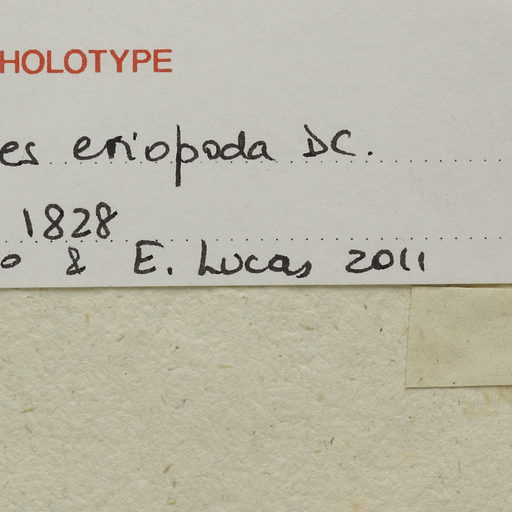 HOLOTYPE
es eriopoda DC.
1828
o & E. Lucas 2011